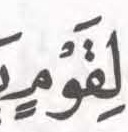 لِقَوْمٍ